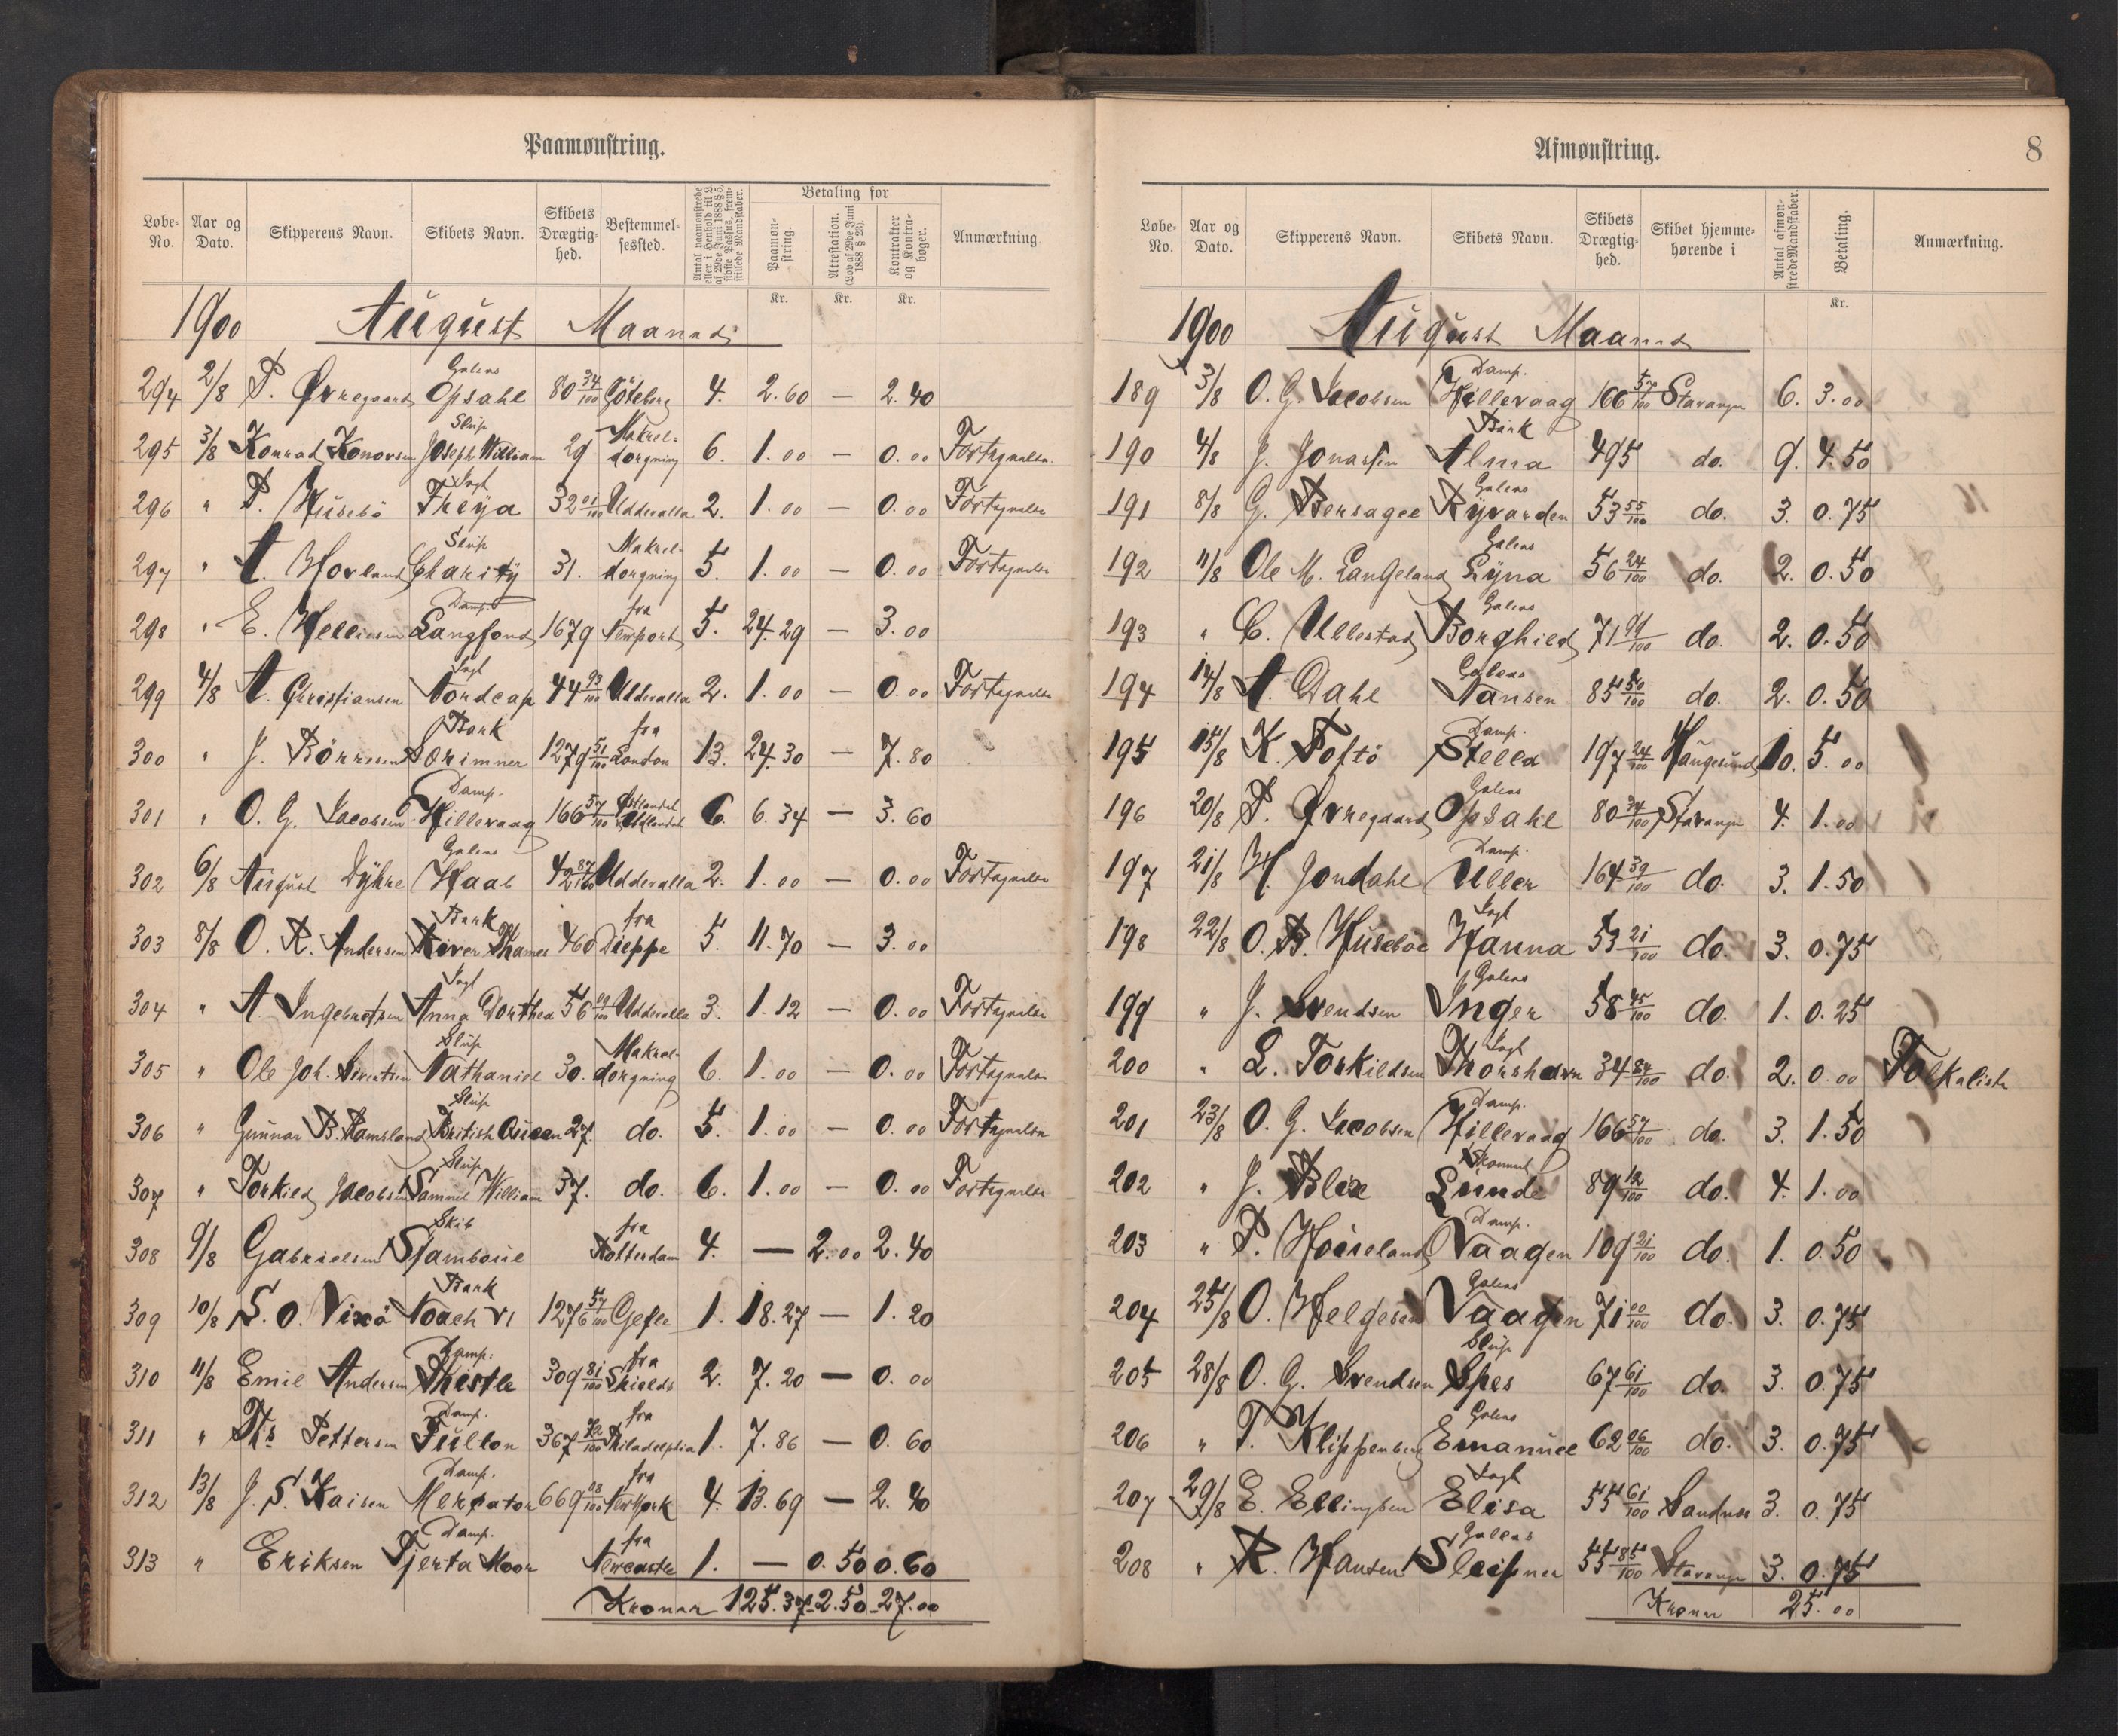 Paamønstring.
Løbe-No. Aar og Dato. Skipperens Navn. Skibets Navn. Skibets Drægtig-hed. Bestemmel-sessted. Antal paamønstrede eller i Henhold til L. af 29de Juni 1888 § 5, sidste Passus, frem-stillede Mandskaber. Betaling for Paamøn-string. Attestation. (Lov af 29de Juni 1888 § 23). Kontrakter og Kontra-bøger. Anmærkning
Kr. Kr. Kr.
1900 August Maaned
294 2/8 P. Øvregaard Galeas Opsahl 80 34/100 Göteborg 4. 2.60 — 2.40
295 3/8 Konrad Konovsen Slup Joseph William 29 Makrel-dorgning 6. 1.00 — 0.00 Fortegnelse
296 " P. Husebö Jagt Freya 32 01/100 Uddevalla 2. 1.00 — 0.00 Fortegnelse
297 " A. Hovland Slup Charity 31. Makrel-dorgning 5. 1.00 — 0.00 Fortegnelse
298 " E. Helliesen Damp. Langfond 1679 fra Newport 5. 24.29 — 3.00
299 4/8 A. Christiansen Jagt Nordcap 44 93/100 Uddevalla 2. 1.00 — 0.00 Fortegnelse
300 " J. Börresen Bark Sörimner 1279 51/100 fra London 13. 24.30 — 7.80
301 " O. G. Jacobsen Damp. Hillevaag 166 57/100 Östlandet Vestlandet 6. 6.34 — 3.60
302 6/8 August Dÿhre Galeas Haab 42 87/100 Uddevalla 2. 1.00 — 0.00 Fortegnelse
303 8/8 O. R. Andersen Bark River Thames 460 fra Dieppe 5. 11.70 — 3.00
304 " A. Ingebretsen Jagt Anna Dorthea 56 09/100 Uddevalla 3. 1.12 — 0.00 Fortegnelse
305 " Ole Joh. Sivertsen Slup Nathaniel 30. Makrel-dorgning 6. 1.00 — 0.00 Fortegnelse
306 " Gunnar B. Ramsland Slup British Queen 27. do. 5. 1.00 — 0.00 Fortegnelse
307 " Torkild Jacobsen Slup Samuel William 37. do. 6. 1.00 — 0.00 Fortegnelse
308 9/8 Gabrielsen Skib Stamboul fra Rotterdam 4. — 2.00 2.40
309 10/8 S. O. Vixö Bark Noach VI 1276 57/100 Gefle 1. 18.27 — 1.20
310 11/8 Emil Andersen Damp. Thistle 309 81/100 fra Shields 2. 7.20 — 0.00
311 " Ths Pettersen Damp. Fulton 367 72/100 fra Philadelphia 1. 7.86 — 0.60
312 13/8 J. S. Kaisen Damp. Mercator 669 08/100 fra New York 4. 13.69 — 2.40
313 " Eriksen Damp. Tjerta Moor fra Newcastle 1. — 0.50 0.60
Kroner 125.37 - 2.50 - 27.00
Afmønstring.
8
Løbe-No. Aar og Dato. Skipperens Navn. Skibets Navn. Skibets Drægtig-hed. Skibet hjemme-hørende i Antal afmøn-strede Mandskaber. Betaling. Anmærkning.
Kr.
1900 August Maaned
189 3/8 O. G. Jacobsen Damp. Hillevaag 166 57/100 Stavanger 6. 3.00
190 4/8 J. Jonassen Bark Alma 495 do. 9. 4.50
191 8/8 G. Bersagel Galeas Ryvarden 53 55/100 do. 3. 0.75
192 11/8 Ole M. Langeland Galeas Lÿna 56 24/100 do. 2. 0.50
193 " C. Ullestad Galeas Borghild 71 99/100 do. 2. 0.50
194 14/8 A. Dahl Galeas Nansen 85 50/100 do. 2. 0.50
195 15/8 K. Toftö Damp. Stella 197 24/100 Haugesund 10. 5.00
196 20/8 P. Øvregaard Galeas Opsahl 80 34/100 Stavanger 4. 1.00
197 21/8 H. Jondahl Damp. Uller 164 39/100 do. 3. 1.50
198 22/8 O. B. Huseboe Jagt Hanna 53 21/100 do. 3. 0.75
199 " J. Svendsen Galeas Inger 58 45/100 do. 1. 0.25
200 " L. Torkildsen Jagt Thorshavn 34 84/100 do. 2. 0.00 Folkeliste
201 23/8 O. G. Jacobsen Damp. Hillevaag 166 57/100 do. 3. 1.50
202 " J. Blix Skonnert Lunde 89 12/100 do. 4. 1.00
203 " P. Höieland Damp. Vaagen 109 21/100 do. 1. 0.50
204 25/8 O. Helgesen Galeas Vaagen 71 00/100 do. 3. 0.75
205 28/8 O. G. Svendsen Slup Spes 67 61/100 do. 3. 0.75
206 " T. Klippenberg Galeas Emanuel 62 06/100 do. 3. 0.75
207 29/8 E. Ellingsen Jagt Elisa 55 61/100 Sandnes 3. 0.75
208 " R. Hansen Galeas Sleipner 55 85/100 Stavanger 3. 0.75
Kroner 25.00